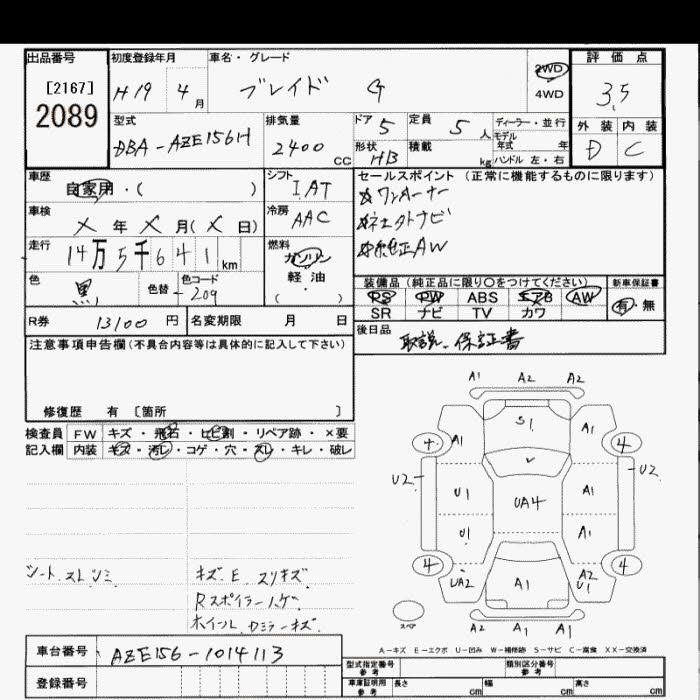 出品番号
[2167]
2089
初度登録年月
H19 4月
車名・グレード
ブレイド G
2WD
4WD
評価点
3.5
型式
DBA-AZE156H
排気量
2400 CC
ドア 5
定員 5 人
形状 HB
積載 kg
ディーラー・並行
モデル年式 年
ハンドル 左・右
外装 内装
D C
車歴
自家用・( )
シフト
IAT
セールスポイント (正常に機能するものに限ります)
☆ワンオーナー
☆社外ナビ
☆純正AW
車検
X年X月(X日)
冷房
AAC
走行
14万5千641km
燃料
ガソリン
軽油・
( )
色
黒
色替
色コード
209
装備品 (純正品に限り○をつけてください)
PS PW ABS エアB AW
SR ナビ TV カワ
新車保証書
有・無
R券 13100円
名変期限 月 日
後日品
取説、保証書
注意事項申告欄(不具合内容等は具体的に記入して下さい)
修復歴 有 〔箇所 〕
検査員記入欄
FW キズ・飛石・ヒビ割・リペア跡・×要
内装 キズ・汚レ・コゲ・穴・スレ・キレ・破レ
A1 A2 A2
S1
A1 A1
4
U2 U2
U1 UA4 A1
U1 A1
4 4
UA2 A1 A2 U1
A2 A1 A1
スペア
シート スレ シミ
キズ.E.スリキズ.
Rスポイラーハゲ.
ホイール.カミラーキズ.
A-キズ E-エクボ U-凹み W-補修跡 S-サビ C-腐食 XX-交換済
車台番号 AZE156-1014113
登録番号
型式指定番号 参考
類別区分番号 参考
車庫証明用 参考
長さ cm 幅 cm 高さ cm